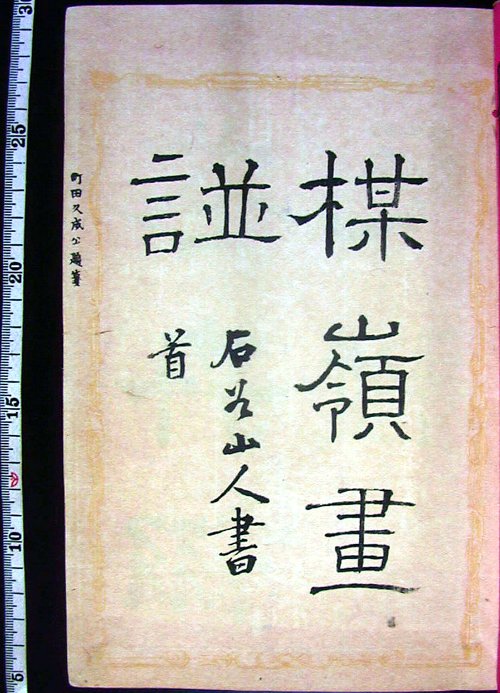 楳嶺畫
諩
石谷山人書
首
町田久成公題
30
25
20
15
10
5